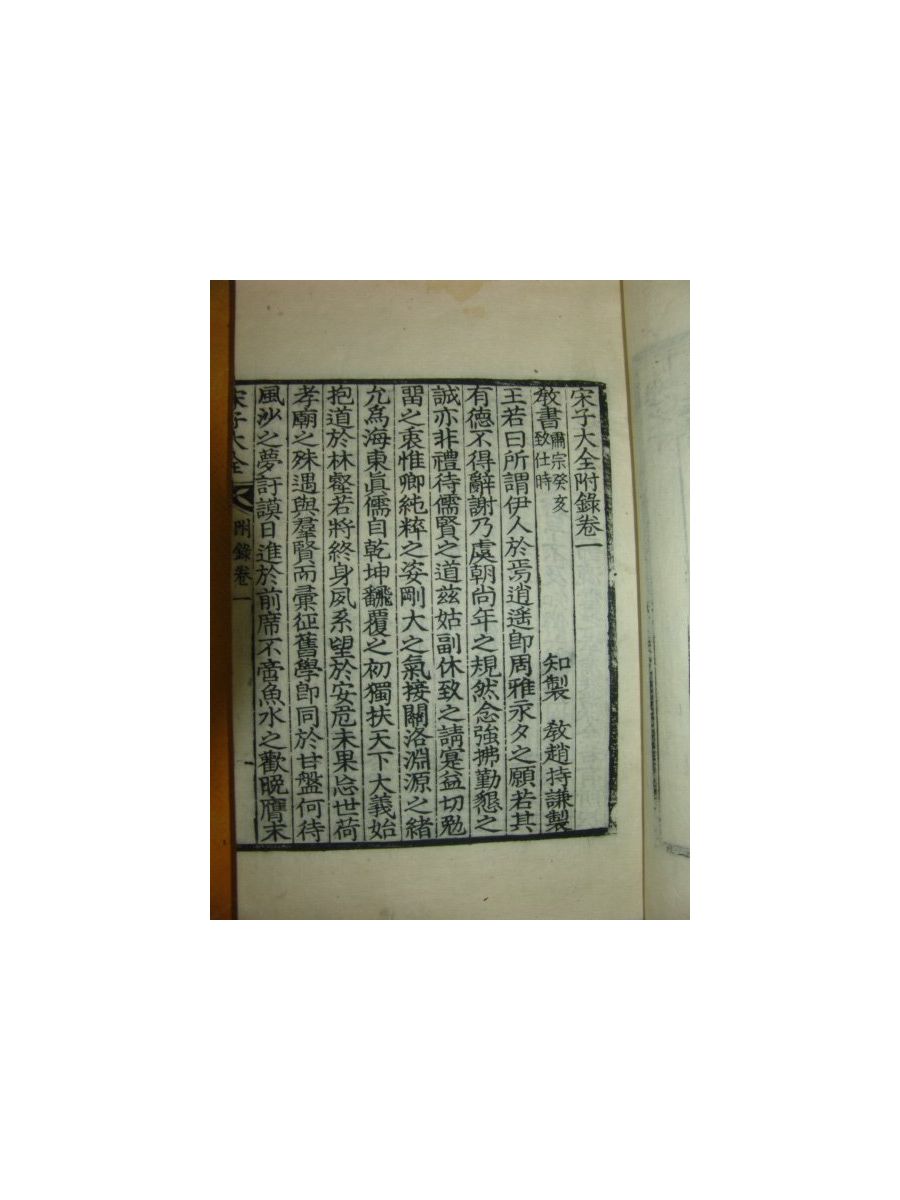 宋子大全附錄卷一
敎書 肅宗癸亥致仕時 知製 敎趙持謙製
王若曰所謂伊人於焉逍遥卽周雅永夕之願若其
有德不得辭謝乃處朝尙年之規然念強拂勤懇之
誠亦非禮待儒賢之道兹姑副休致之請寔益切勉
畱之衷惟卿純粹之姿剛大之氣接關洛淵源之緖
允爲海東眞儒自乾坤飜覆之初獨扶天下大義始
抱道於林壑若將終身夙系望於安危未果忘世荷
孝廟之殊遇與羣賢而彙征舊學卽同於甘盤何待
風沙之夢訏謨日進於前席不啻魚水之歡晩膺末
宋子大全 附錄卷一